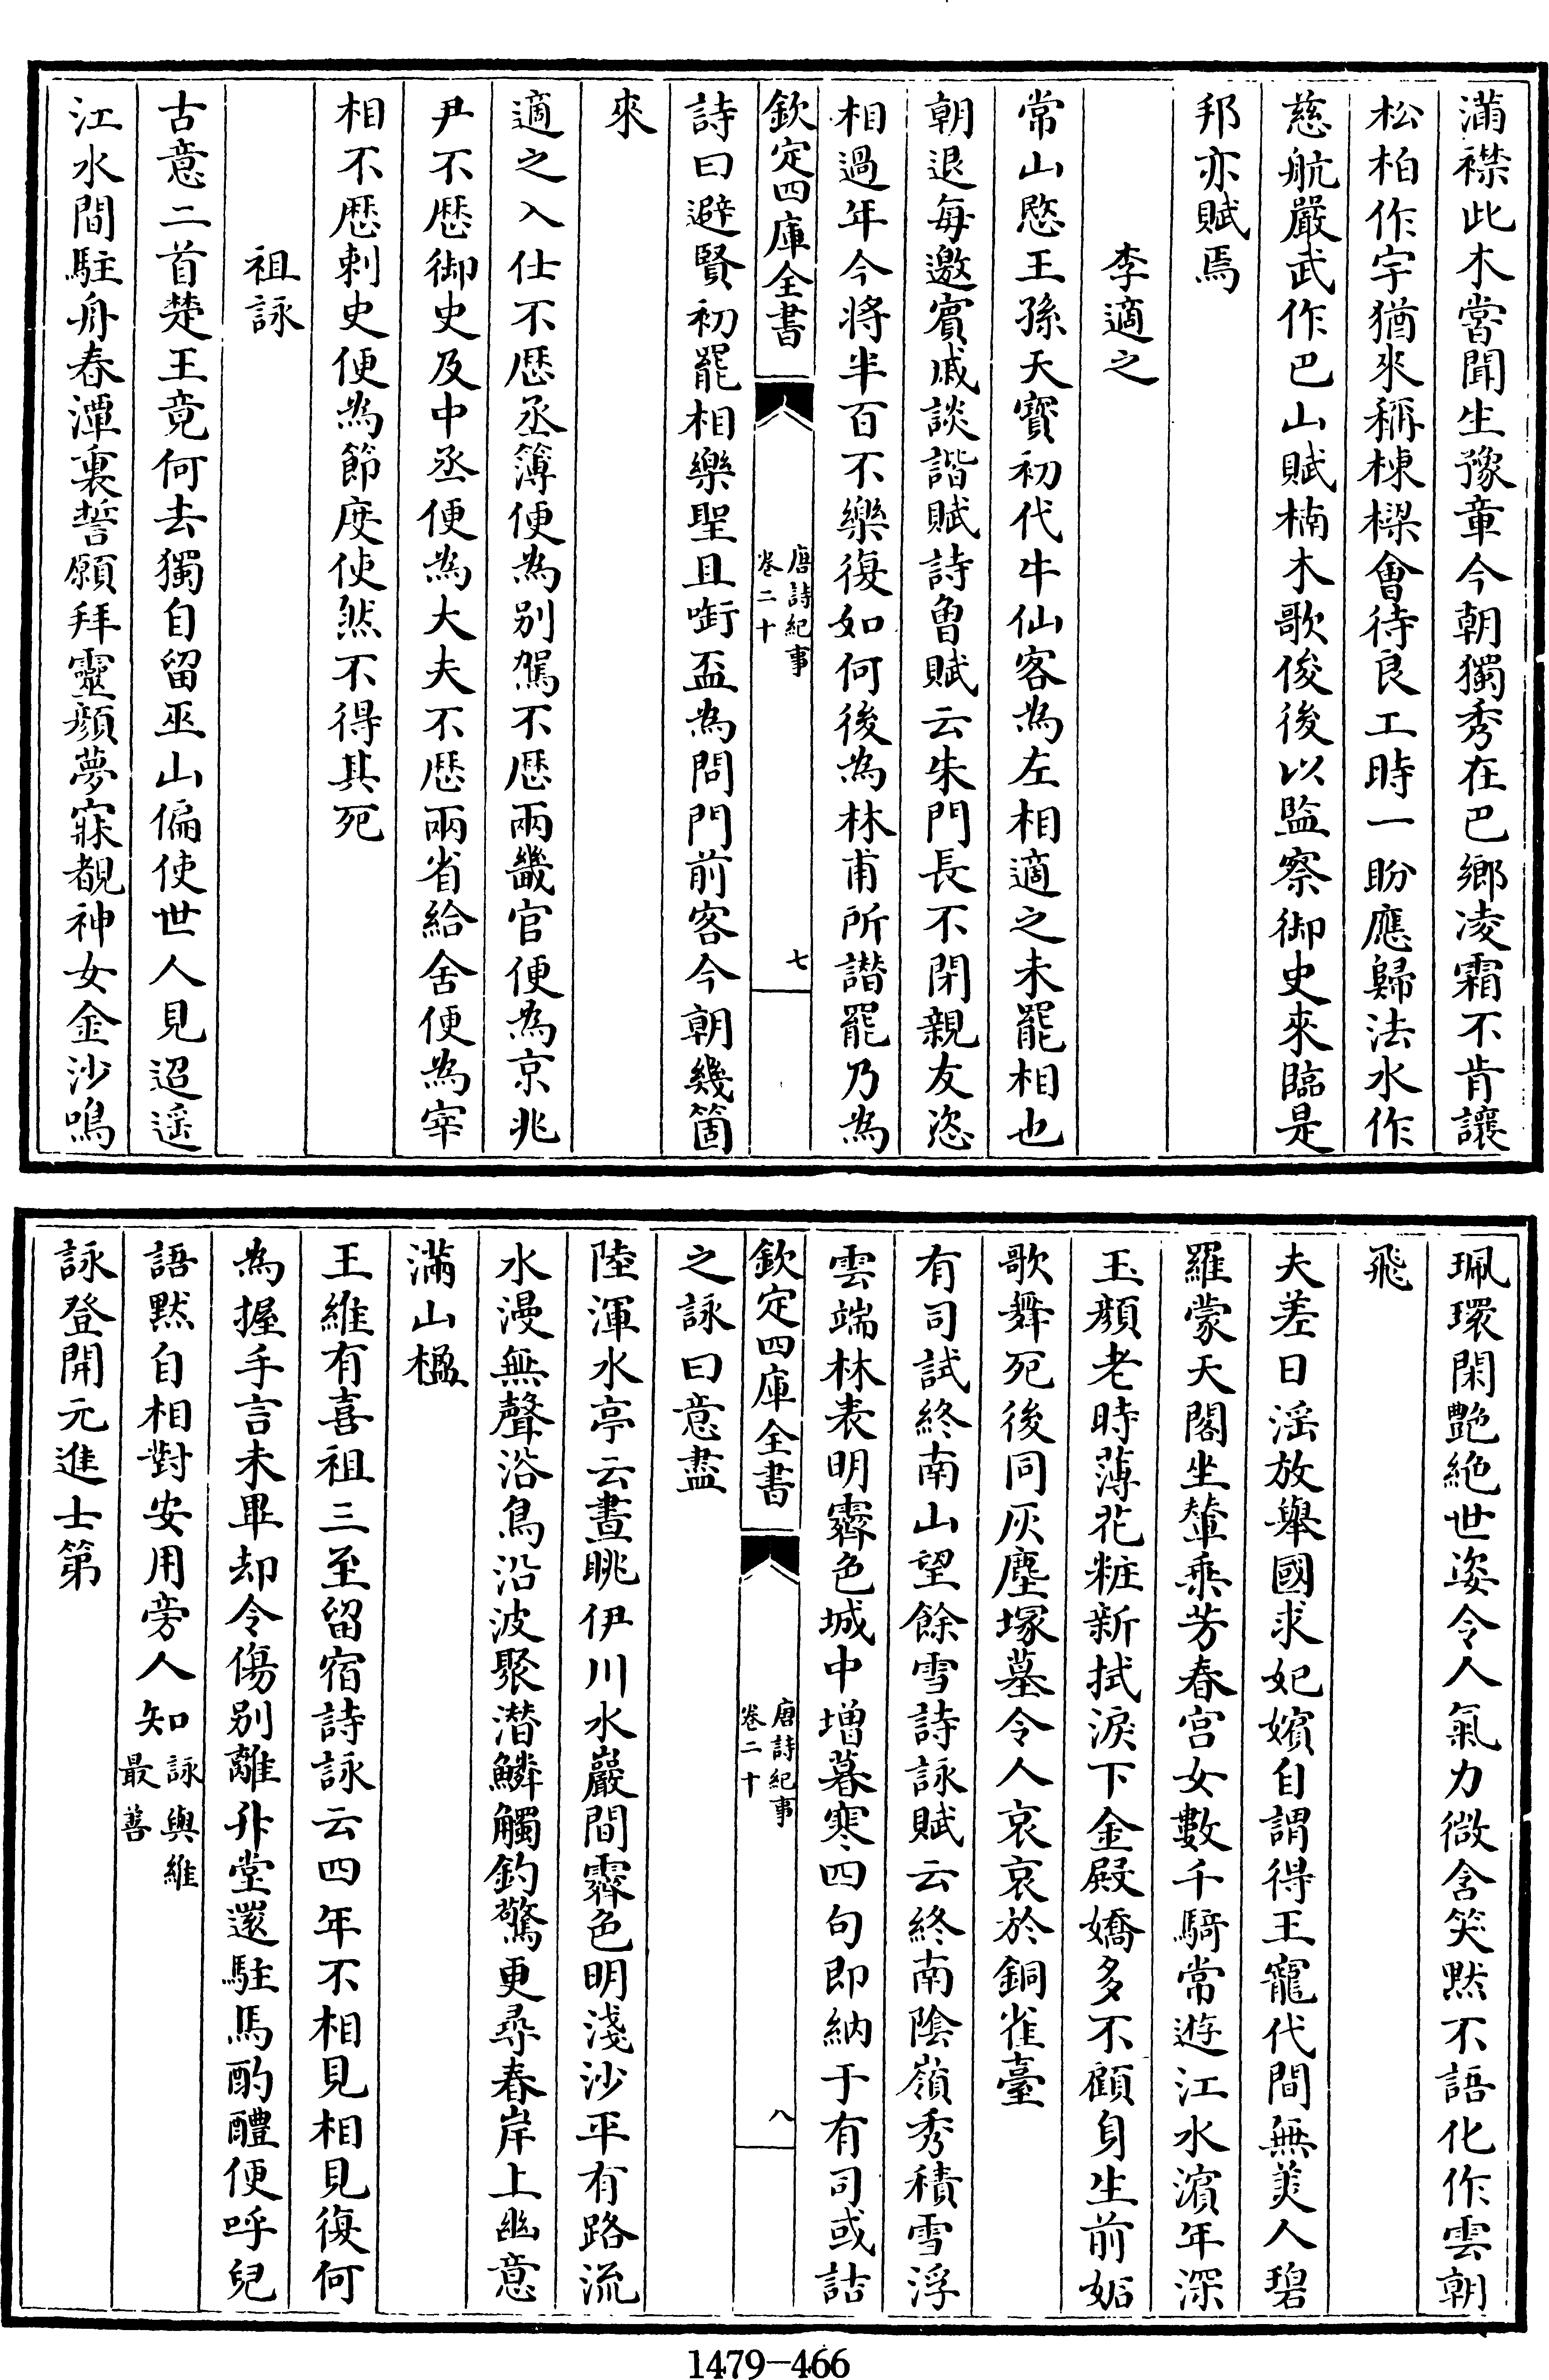 滿襟此木嘗聞生豫章今朝獨秀在巴鄉凌霜不肯讓
松柏作宇猶來稱棟樑會待良工時一盼應歸法水作
慈航嚴武作巴山賦楠木歌俊後以監察御史來臨是
邦亦賦焉
李適之
常山愍王孫天寶初代牛仙客為左相適之未罷相也
朝退每邀賓戚談諧賦詩曾賦云朱門長不閉親友恣
相過年今將半百不樂復如何後為林甫所譖罷乃為
欽定四庫全書
唐詩紀事
卷二十
七
詩曰避賢初罷相樂聖且㗸盃為問門前客今朝幾箇
來
適之入仕不歴丞簿便為别駕不歴兩畿官便為京兆
尹不歴御史及中丞便為大夫不歴兩省給舍便為宰
相不歴刺史便為節度使然不得其死
祖詠
古意二首楚王竟何去獨自留巫山偏使世人見迢遥
江水間駐舟春潭裏誓願拜靈顔夢寐覩神女金沙鳴
珮環閑艷絶世姿令人氣力微含笑黙不語化作雲朝
飛
夫差日淫放舉國求妃嬪自謂得王寵代間無美人碧
羅蒙天閣坐輦乘芳春宫女數千騎常遊江水濵年深
玉顔老時薄花粧新拭淚下金殿嬌多不顧身生前妬
歌舞死後同灰塵塚墓令人哀哀於銅雀臺
有司試終南山望餘雪詩詠賦云終南隂嶺秀積雪浮
雲端林表明霽色城中增暮寒四句即納于有司或詰
欽定四庫全書
唐詩紀事
卷二十
八
之詠曰意盡
陸渾水亭云晝眺伊川水巖間霽色明淺沙平有路流
水漫無聲浴鳥沿波聚潛鱗觸釣驚更尋春岸上幽意
滿山楹
王維有喜祖三至留宿詩詠云四年不相見相見復何
為握手言未畢却令傷别離升堂還駐馬酌醴便呼兒
語黙自相對安用旁人知詠與維最善
詠登開元進士第
1479-466